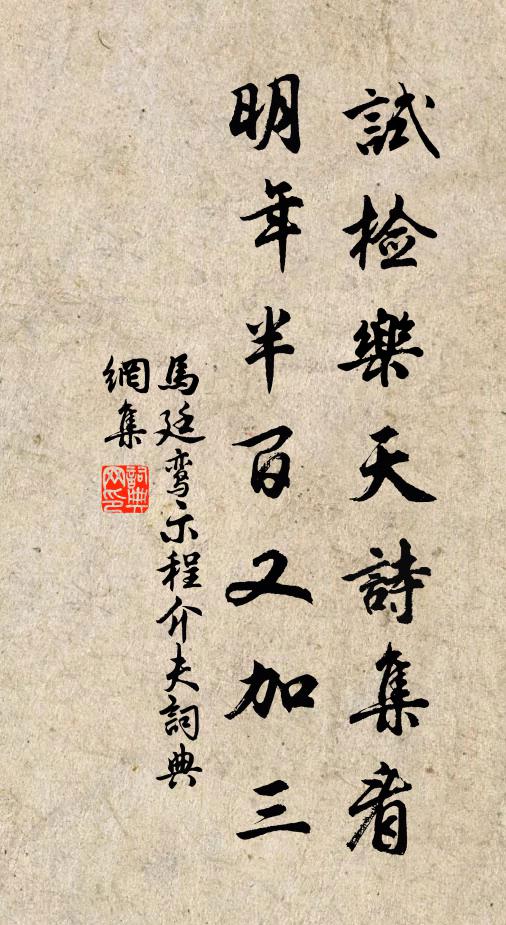 試檢樂天詩集看
明年半百又加三
馬廷鸾示程介夫詞典
網集
詞典网印